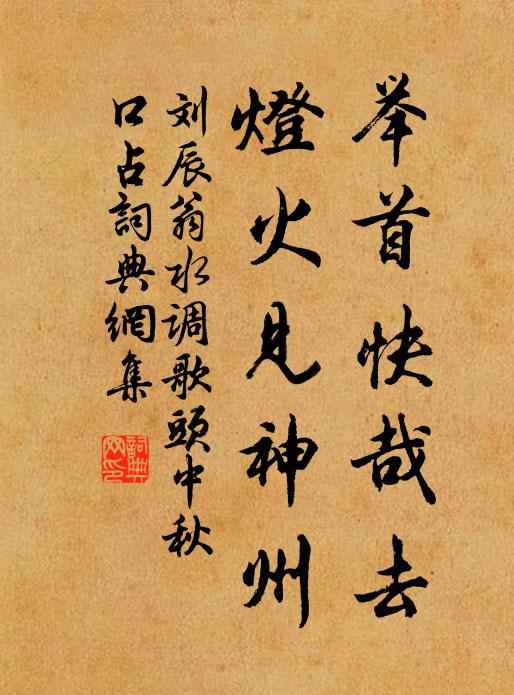 举首快哉去
燈火見神州
刘辰翁水调歌頭中秋
口占詞典網集
詞典网印